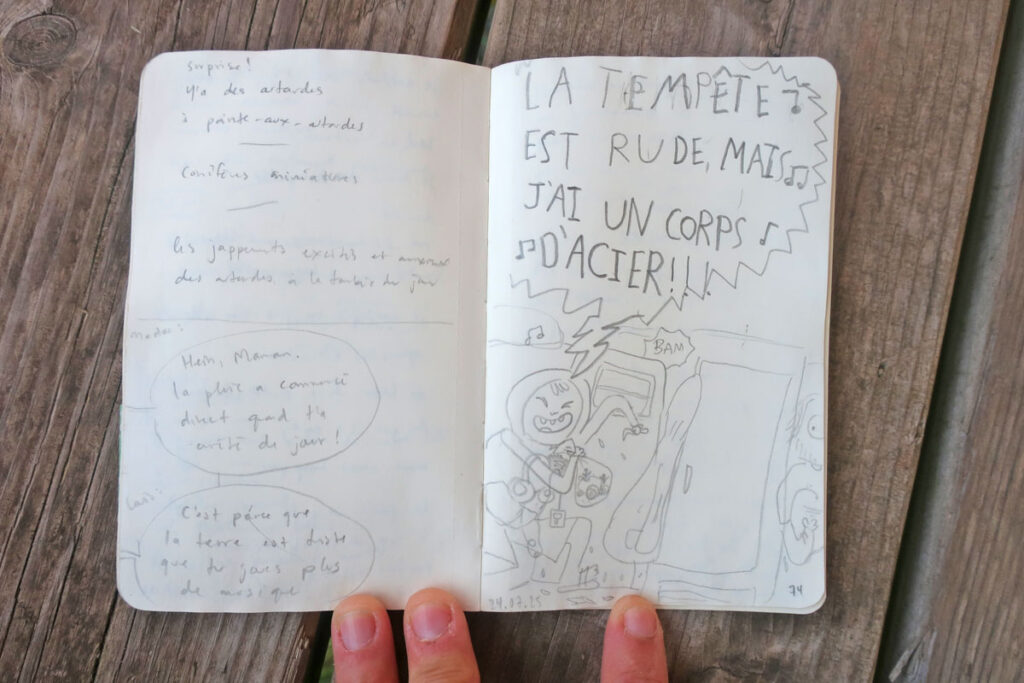 surprise!
Y'a des outardes
à pointe-aux-outardes
conifères miniatures
les jappements excités et
des outardes à la tombée du jour
Hein, Maman.
la pluie a commencé
direct quand t'a
arrêté de jouer!
C'est parce que
la terre est triste
que tu joues plus
de musique
LA TEMPÊTE
EST RUDE, MAIS
J'AI UN CORPS
D'ACIER!!!
BAM
113
24.07.25
74